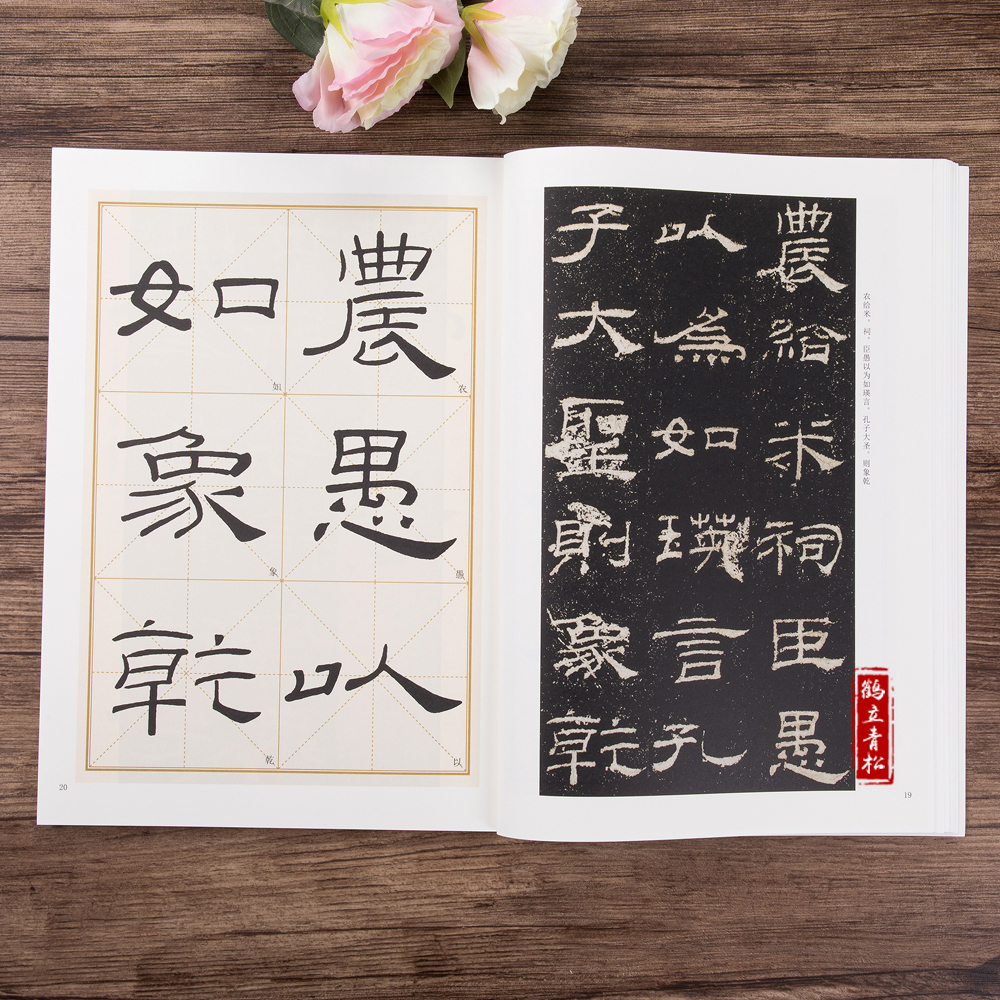 農給米祠臣愚
以為如瑛言孔
子大聖則象乾
农给米。祠。臣愚以为如瑛言，孔子大圣，则象乾
19
鹤立青松
農愚以
如象乾
农
愚
以
如
象
乾
20